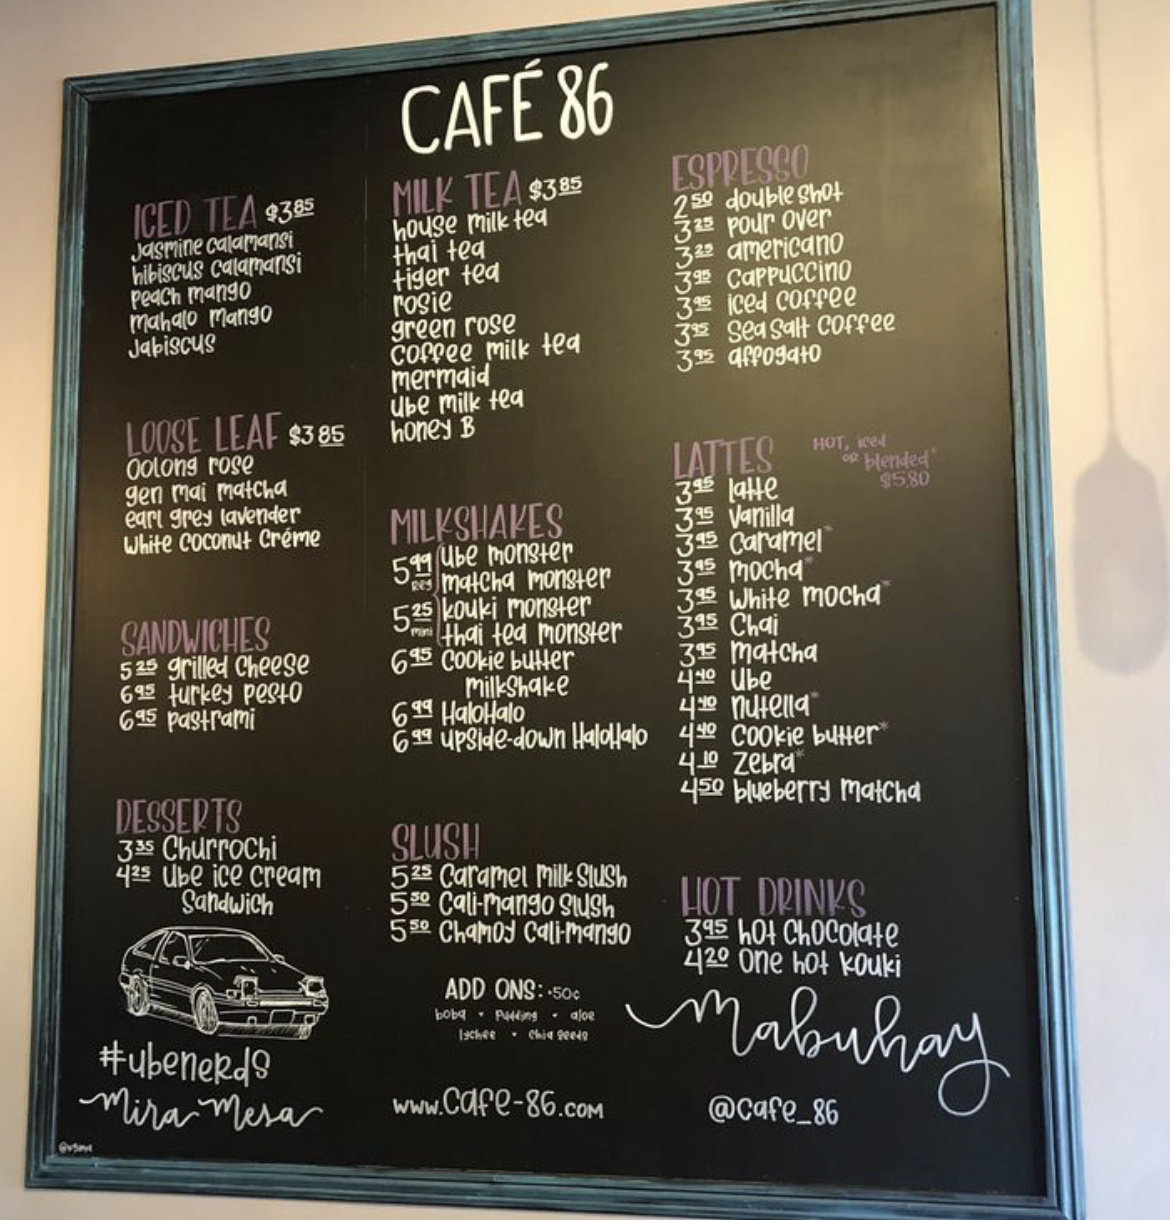 CAFÉ 86
ICED TEA $3.85
Jasmine calamansi
hibiscus calamansi
peach mango
mahalo mango
Jabiscus
LOOSE LEAF $3.85
Oolong rose
gen mai matcha
earl grey lavender
White Coconut Créme
SANDWICHES
5.25 grilled cheese
6.95 turkey pesto
6.95 pastrami
DESSERTS
3.35 Churrochi
4.25 Ube ice cream
Sandwich
#ubenerds
Mira Mesa
MILK TEA $3.85
house milk tea
thai tea
tiger tea
rosie
green rose
Coffee milk tea
mermaid
ube milk tea
honey B
MILKSHAKES
5.99 reg
5.25 mini
Ube monster
matcha monster
kouki monster
thai tea monster
6.95 Cookie butter
milkshake
6.99 HaloHalo
6.99 upside-down HaloHalo
SLUSH
5.25 Caramel Milk Slush
5.50 Cali-Mango Slush
5.50 Chamoy Cali-Mango
ADD ONS: .50¢
boba • Pudding • aloe
lychee • chia seeds
www.cafe-86.com
ESPRESSO
2.50 double shot
3.25 pour over
3.25 americano
3.95 Cappuccino
3.95 iced coffee
3.95 Sea Salt Coffee
3.95 affogato
LATTES
HOT, iced
or blended*
$5.80
3.95 latte
3.95 Vanilla
3.95 Caramel*
3.95 mocha*
3.95 White mocha*
3.95 Chai
3.95 matcha
4.40 Ube
4.40 nutella*
4.40 Cookie butter*
4.10 Zebra*
4.50 blueberry matcha
HOT DRINKS
3.95 hot Chocolate
4.20 One hot Kouki
Mabuhay
@cafe_86